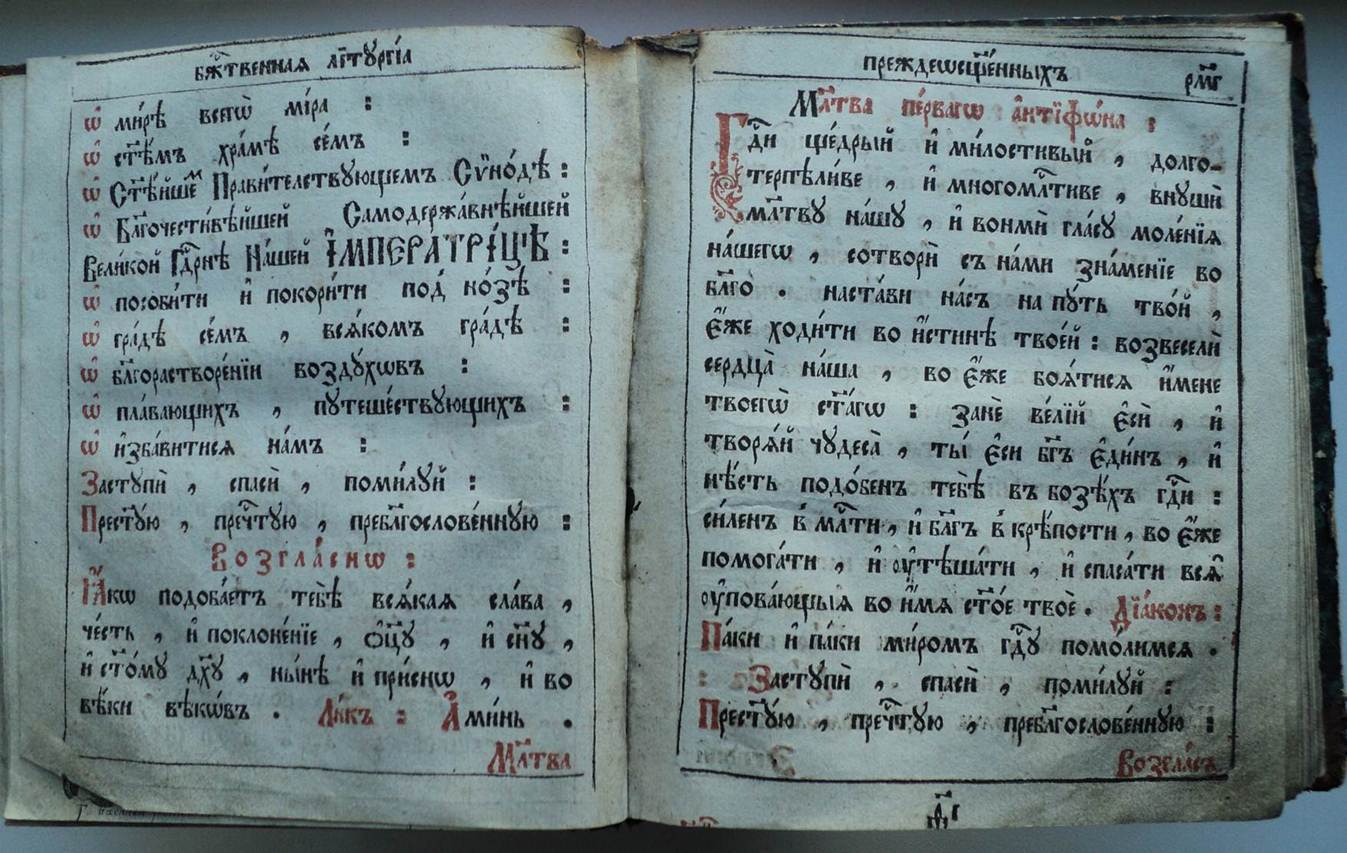 бж҃твенная лїтꙋргі́а
ѽ ми́рѣ всегѡ̀ мі́ра :
ѽ ст҃ѣмъ хра́мѣ се́мъ :
ѽ Ст҃ѣ́йшем Прави́телствꙋющемъ Сѵ́нодѣ :
ѽ Бл҃гочести́вѣйшей Самодержа́внѣйшей
Вели́кой Гдⷭ҇рнѣ На́шей І҆МПЕРАТРІ́ЦѢ :
ѽ посо́бити и҆ покори́ти под̾ но́зѣ :
ѽ гра́дѣ се́мъ , вся́комъ гра́дѣ :
ѽ бл҃горастворе́нїи воздꙋ́хѡвъ :
ѽ пла́вающихъ , пꙋтеше́ствꙋющихъ :
ѽ и҆зба́витися на́мъ :
Застꙋпѝ , спасѝ , поми́лꙋй :
Прест҃ꙋ́ю , преч҃тꙋю , пребл҃гослове́ннꙋю :
Возгла́снѡ :
Ꙗ҆́кѡ подоба́етъ тебѣ̀ вся́каѧ сла́ва ,
че́сть , и҆ поклоне́нїе , ѻ҆ц҃ꙋ̀ , и҆ сн҃ꙋ ,
и҆ ст҃о́мꙋ дх҃ꙋ , ны́нѣ и҆ при́снѡ , и҆ во
вѣ́ки вѣкѡ́въ . Ли́къ : А҆ми́нь .
Мл҃тва
преждеѡсщ҃е́нныхъ рм҃г
Мл҃тва пе́рвагѡ а҆нтїфѡ́на :
Гдⷭ҇и ще́дрый и҆ ми́лостивый , долго-
терпѣли́ве , и҆ многомл҃тиве , внꙋшѝ
мл҃твꙋ на́шꙋ , и҆ вонмѝ гла́сꙋ моле́нїѧ
на́шегѡ , сотворѝ съ на́ми зна́менїе во
бл҃го . наста́ви на́съ на пꙋ́ть тво́й ,
є҆́же ходи́ти во и҆́стинѣ твое́й : возвеселѝ
сердца̀ на́ша , во є҆́же боя́тися и҆́мене
твоегѡ̀ ст҃а́гѡ : занѐ ве́лїй є҆сѝ , и҆
творѧ́й чꙋдеса̀ , ты́ є҆си бг҃ъ є҆ди́нъ , и҆
нѣ́сть подо́бенъ тебѣ̀ въ бозѣ́хъ гдⷭ҇и :
си́ленъ в̾ мл҃ти , и҆ бл҃гъ в̾ крѣ́пости , во є҆́же
помога́ти , и҆ ᲂу҆тѣша́ти , и҆ спаса́ти вся̀
ᲂу҆пова́ющыѧ во и҆́мя ст҃о́е твоѐ . Дїа́конъ :
Па́ки и҆ па́ки ми́ромъ гдⷭ҇ꙋ помо́лимся .
: Застꙋпѝ , спасѝ , поми́лꙋй :
Прест҃ꙋ́ю , преч҃тꙋю , пребл҃гослове́ннꙋю :
Возгла́съ